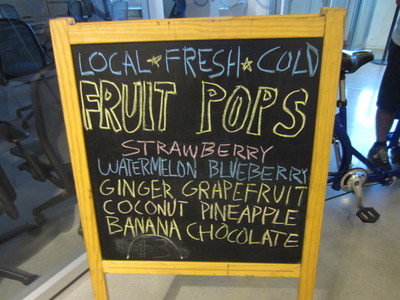 LOCAL ★ FRESH ★ COLD
FRUIT POPS
STRAWBERRY
WATERMELON BLUEBERRY
GINGER GRAPEFRUIT
COCONUT PINEAPPLE
BANANA CHOCOLATE